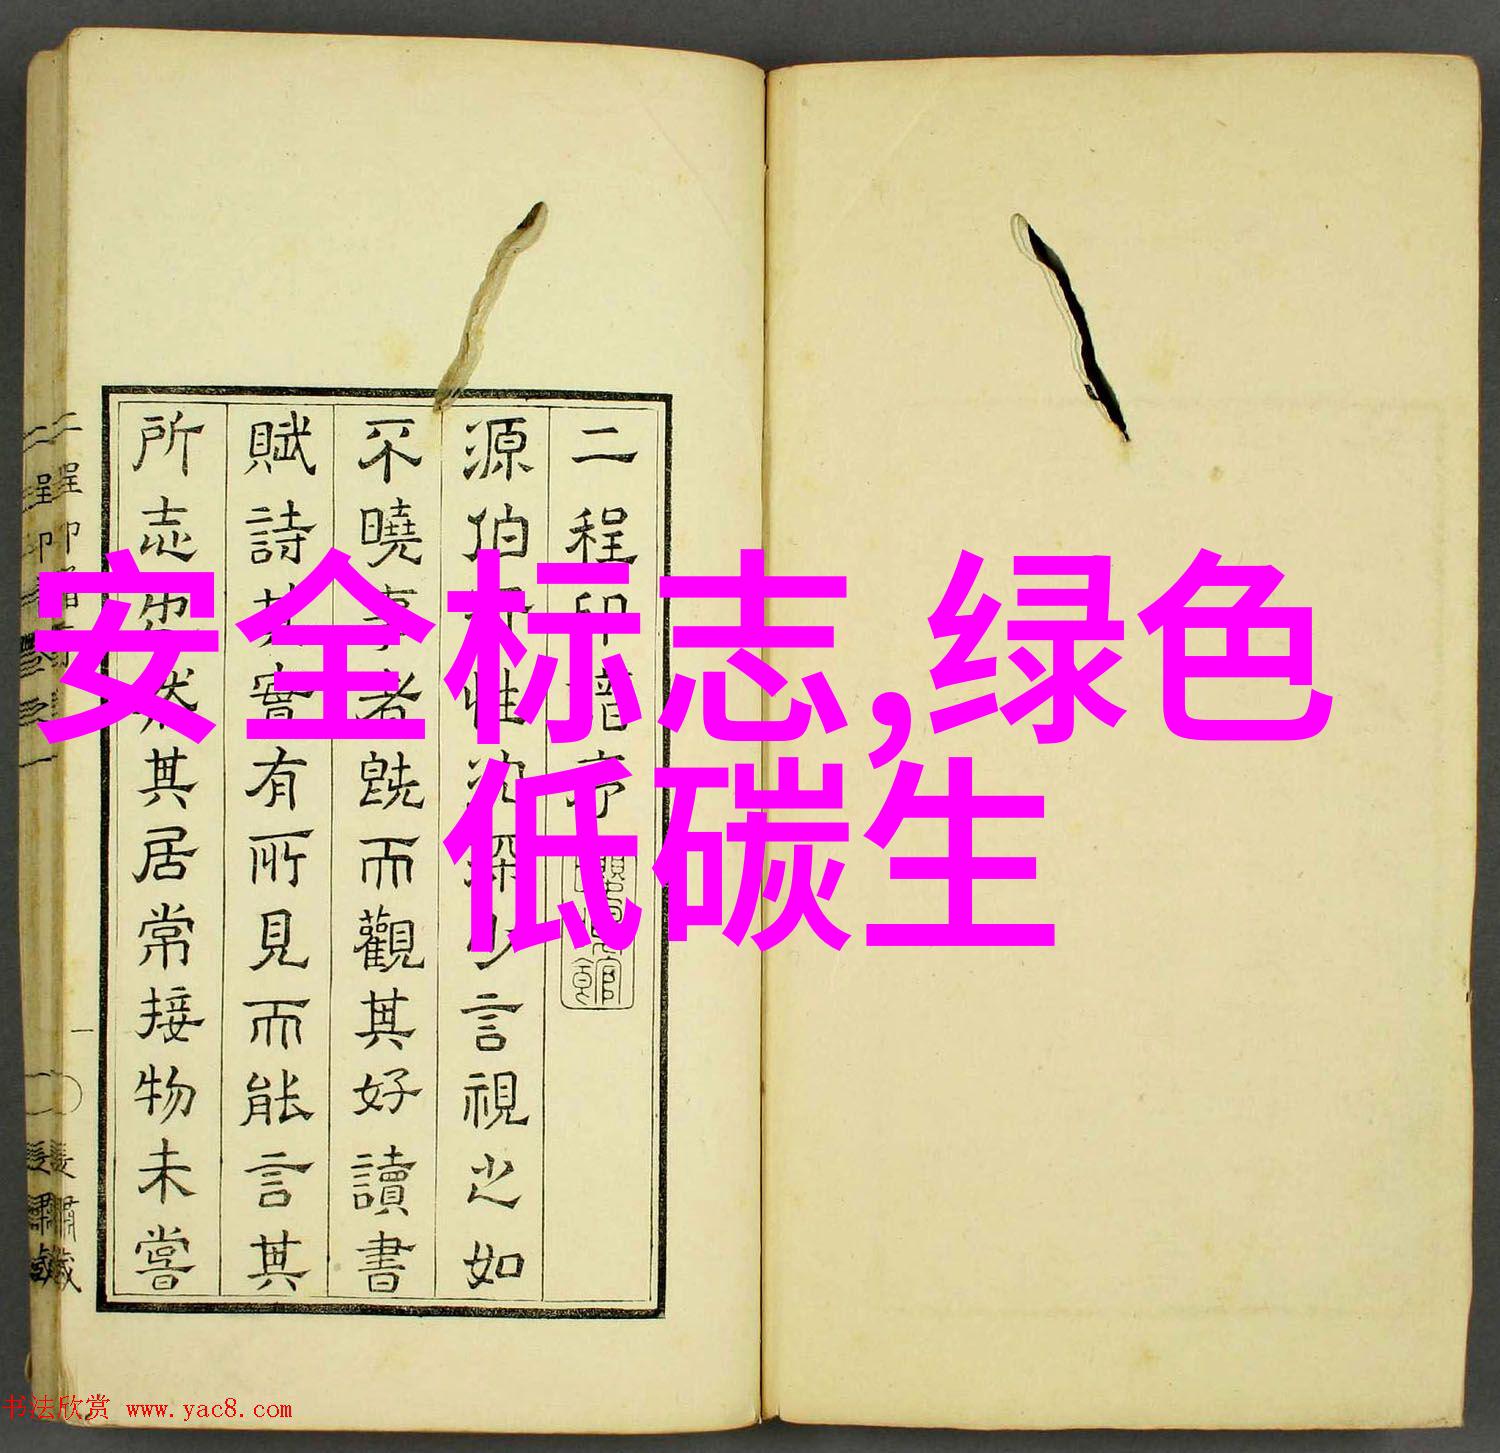 安全标志,绿色
低碳生
二程印譜序
源伯 性 深少言視之如
不曉事者旣而觀其好讀書
賦詩其實有所見而能言其
所志也然其居常接物未嘗
书法欣赏 www.yac8.com